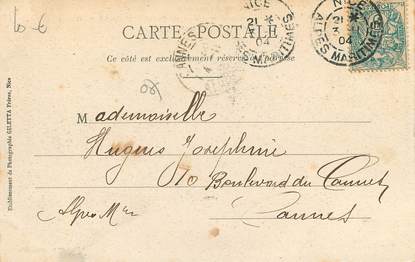 10 €
CARTE POSTALE
Ce côté est exclusivement réservé à l'adresse
NICE
21
04
ALPES MARITIMES
NICE
21
04
ALPES MARITIMES
CANNES
Mademoiselle
Hugues Joséphine
10 Boulevard du Cannet
Cannes
Alpes Mmes
Etablissement de Photographie GILETTA Frères, Nice